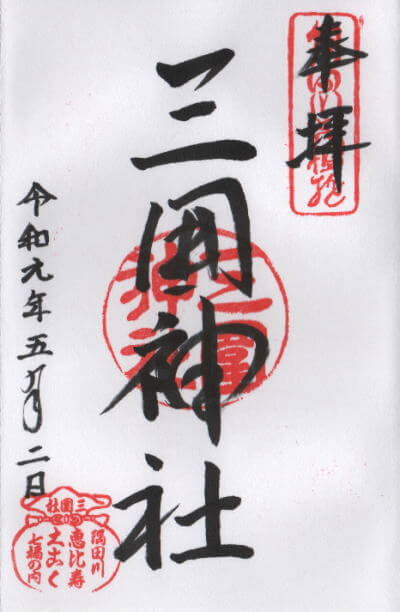 奉拝
三囲神社
令和元年五月二日
三囲社
隅田川
恵比寿
大こく
七福の内